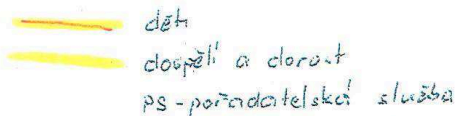 děti
dospělí a dorost
PS-pořadatelská služba